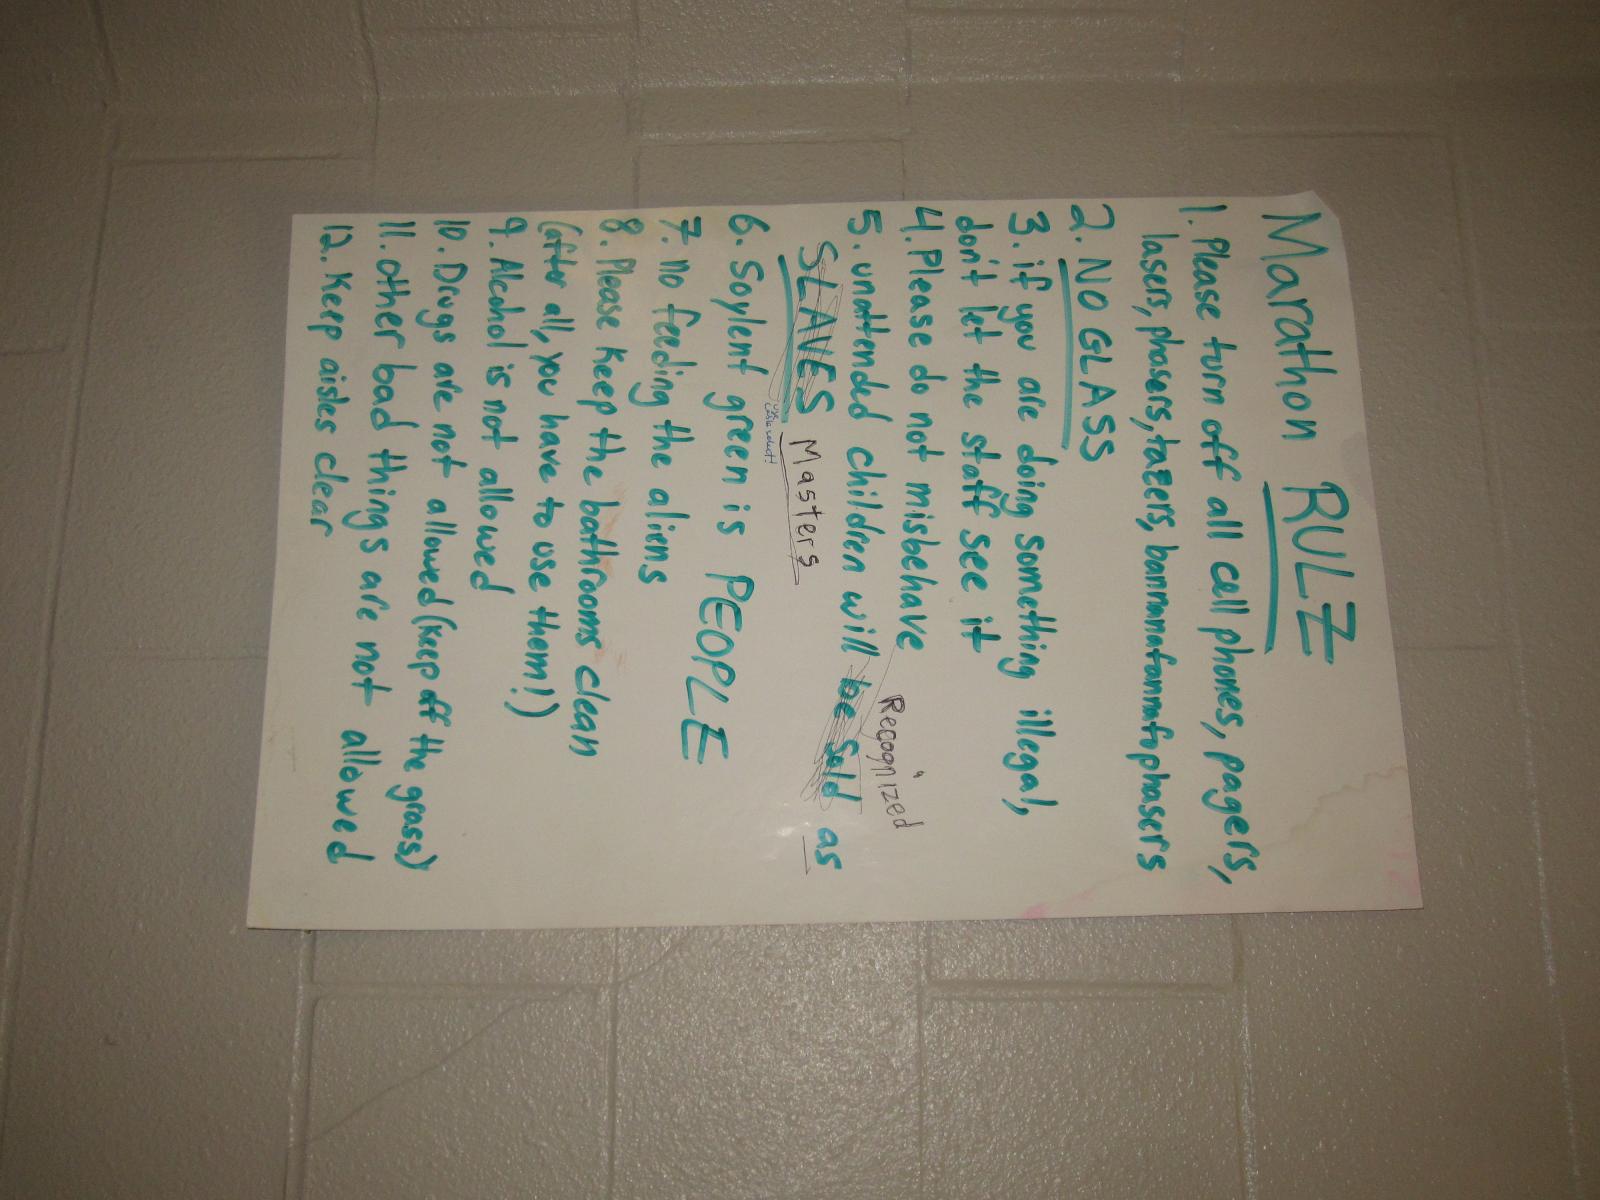 Marathon RULZ
1. Please turn off all cell phones, pagers,
lasers, phasers, tazers,
2. NO GLASS
3. if you are doing something illegal,
don't let the staff see it
4. Please do not misbehave
Recognized
5. unattended children will be sold as
SLAVES Masters
6. Soylent green is PEOPLE
7. no feeding the aliens
8. Please keep the bathrooms clean
(after all, you have to use them!)
9. Alcohol is not allowed
10. Drugs are not allowed (keep off the grass)
11. other bad things are not allowed
12. Keep aisles clear